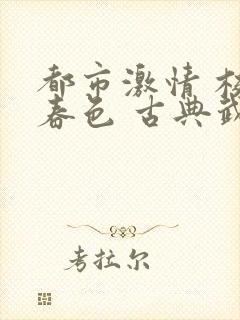 都市激情
春色 古典
考拉尔